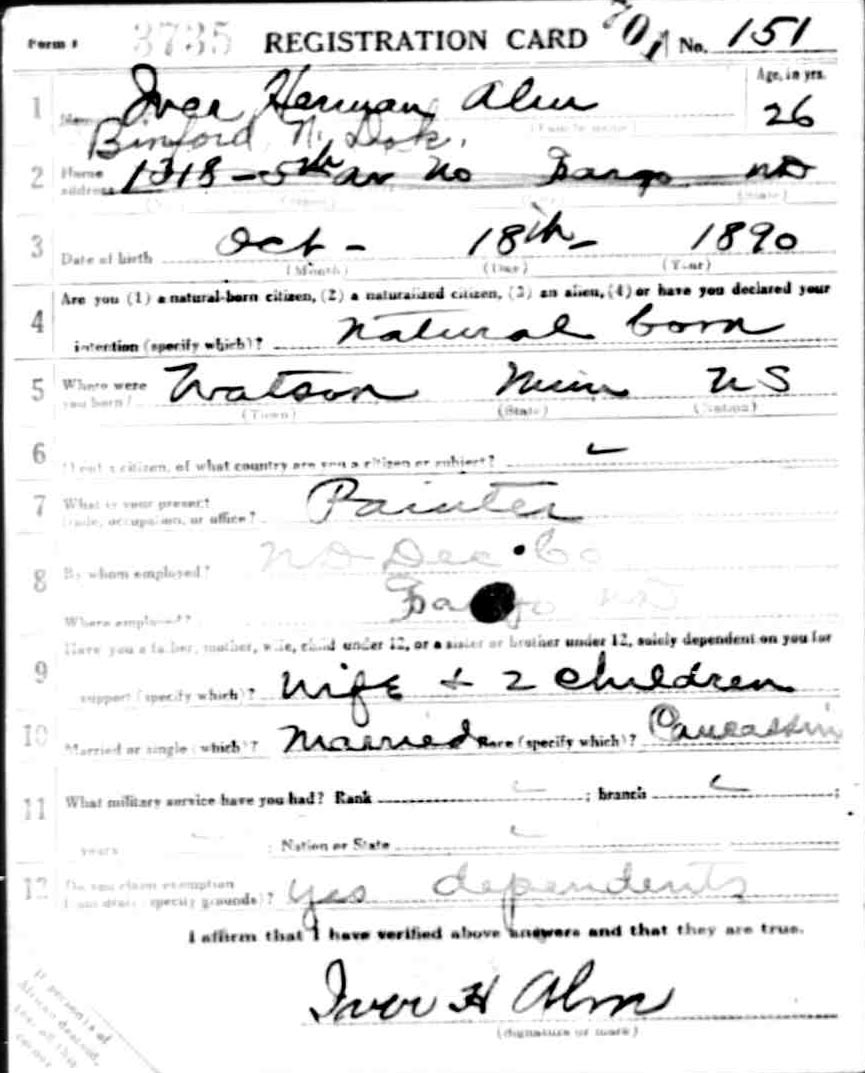 Form 1 3735 REGISTRATION CARD 701 No. 151
1 Name Iver Herman Alm Age, in yrs. 26
(Family name)
Binford, N. Dak.
2 Home address 1318 - 5th av No Fargo ND
(No.) (Street) (City) (State)
3 Date of birth Oct - 18th - 1890
(Month) (Day) (Year)
Are you (1) a natural-born citizen, (2) a naturalized citizen, (3) an alien, (4) or have you declared your
4 intention (specify which)? Natural born
5 Where were you born? Watson Minn US
(Town) (State) (Nation)
6 If not a citizen, of what country are you a citizen or subject?
7 What is your present trade, occupation, or office? Painter
8 By whom employed? ND Dec. Co
Where employed? Fargo ND
Have you a father, mother, wife, child under 12, or a sister or brother under 12, solely dependent on you for
9 support (specify which)? Wife + 2 children
10 Married or single (which)? Married Race (specify which)? Caucassin
11 What military service have you had? Rank ; branch ;
years ; Nation or State
12 Do you claim exemption from draft (specify grounds)? Yes dependents
I affirm that I have verified above answers and that they are true.
Iver H Alm
(Signature or mark)
If person is of
African descent,
tear off this
corner